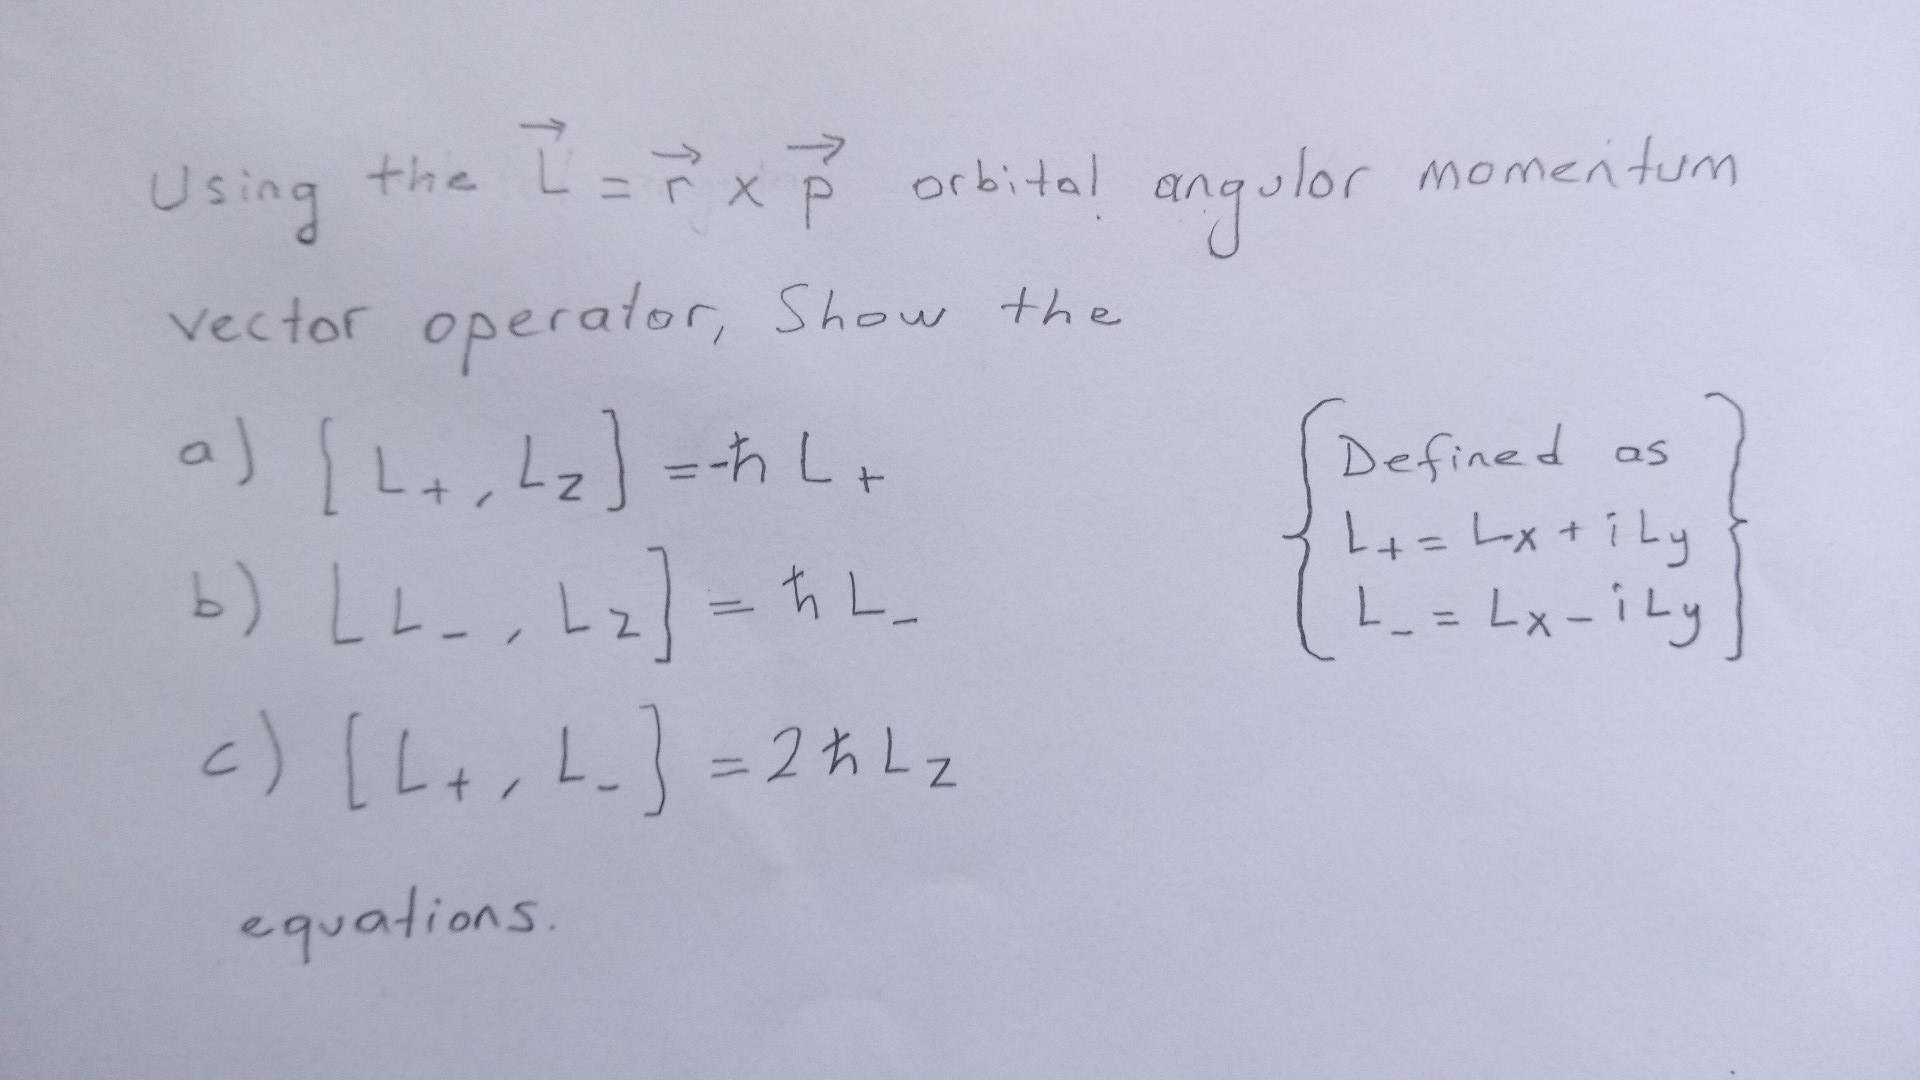 Using the L⃗ = r⃗ x p⃗ orbital angular momentum
vector operator, Show the
a) [L₊, Lz] = -ħ L₊
b) [L₋, Lz] = ħ L₋
c) [L₊, L₋] = 2ħLz
equations.
{Defined as
L₊ = Lx + iLy
L₋ = Lx - iLy}